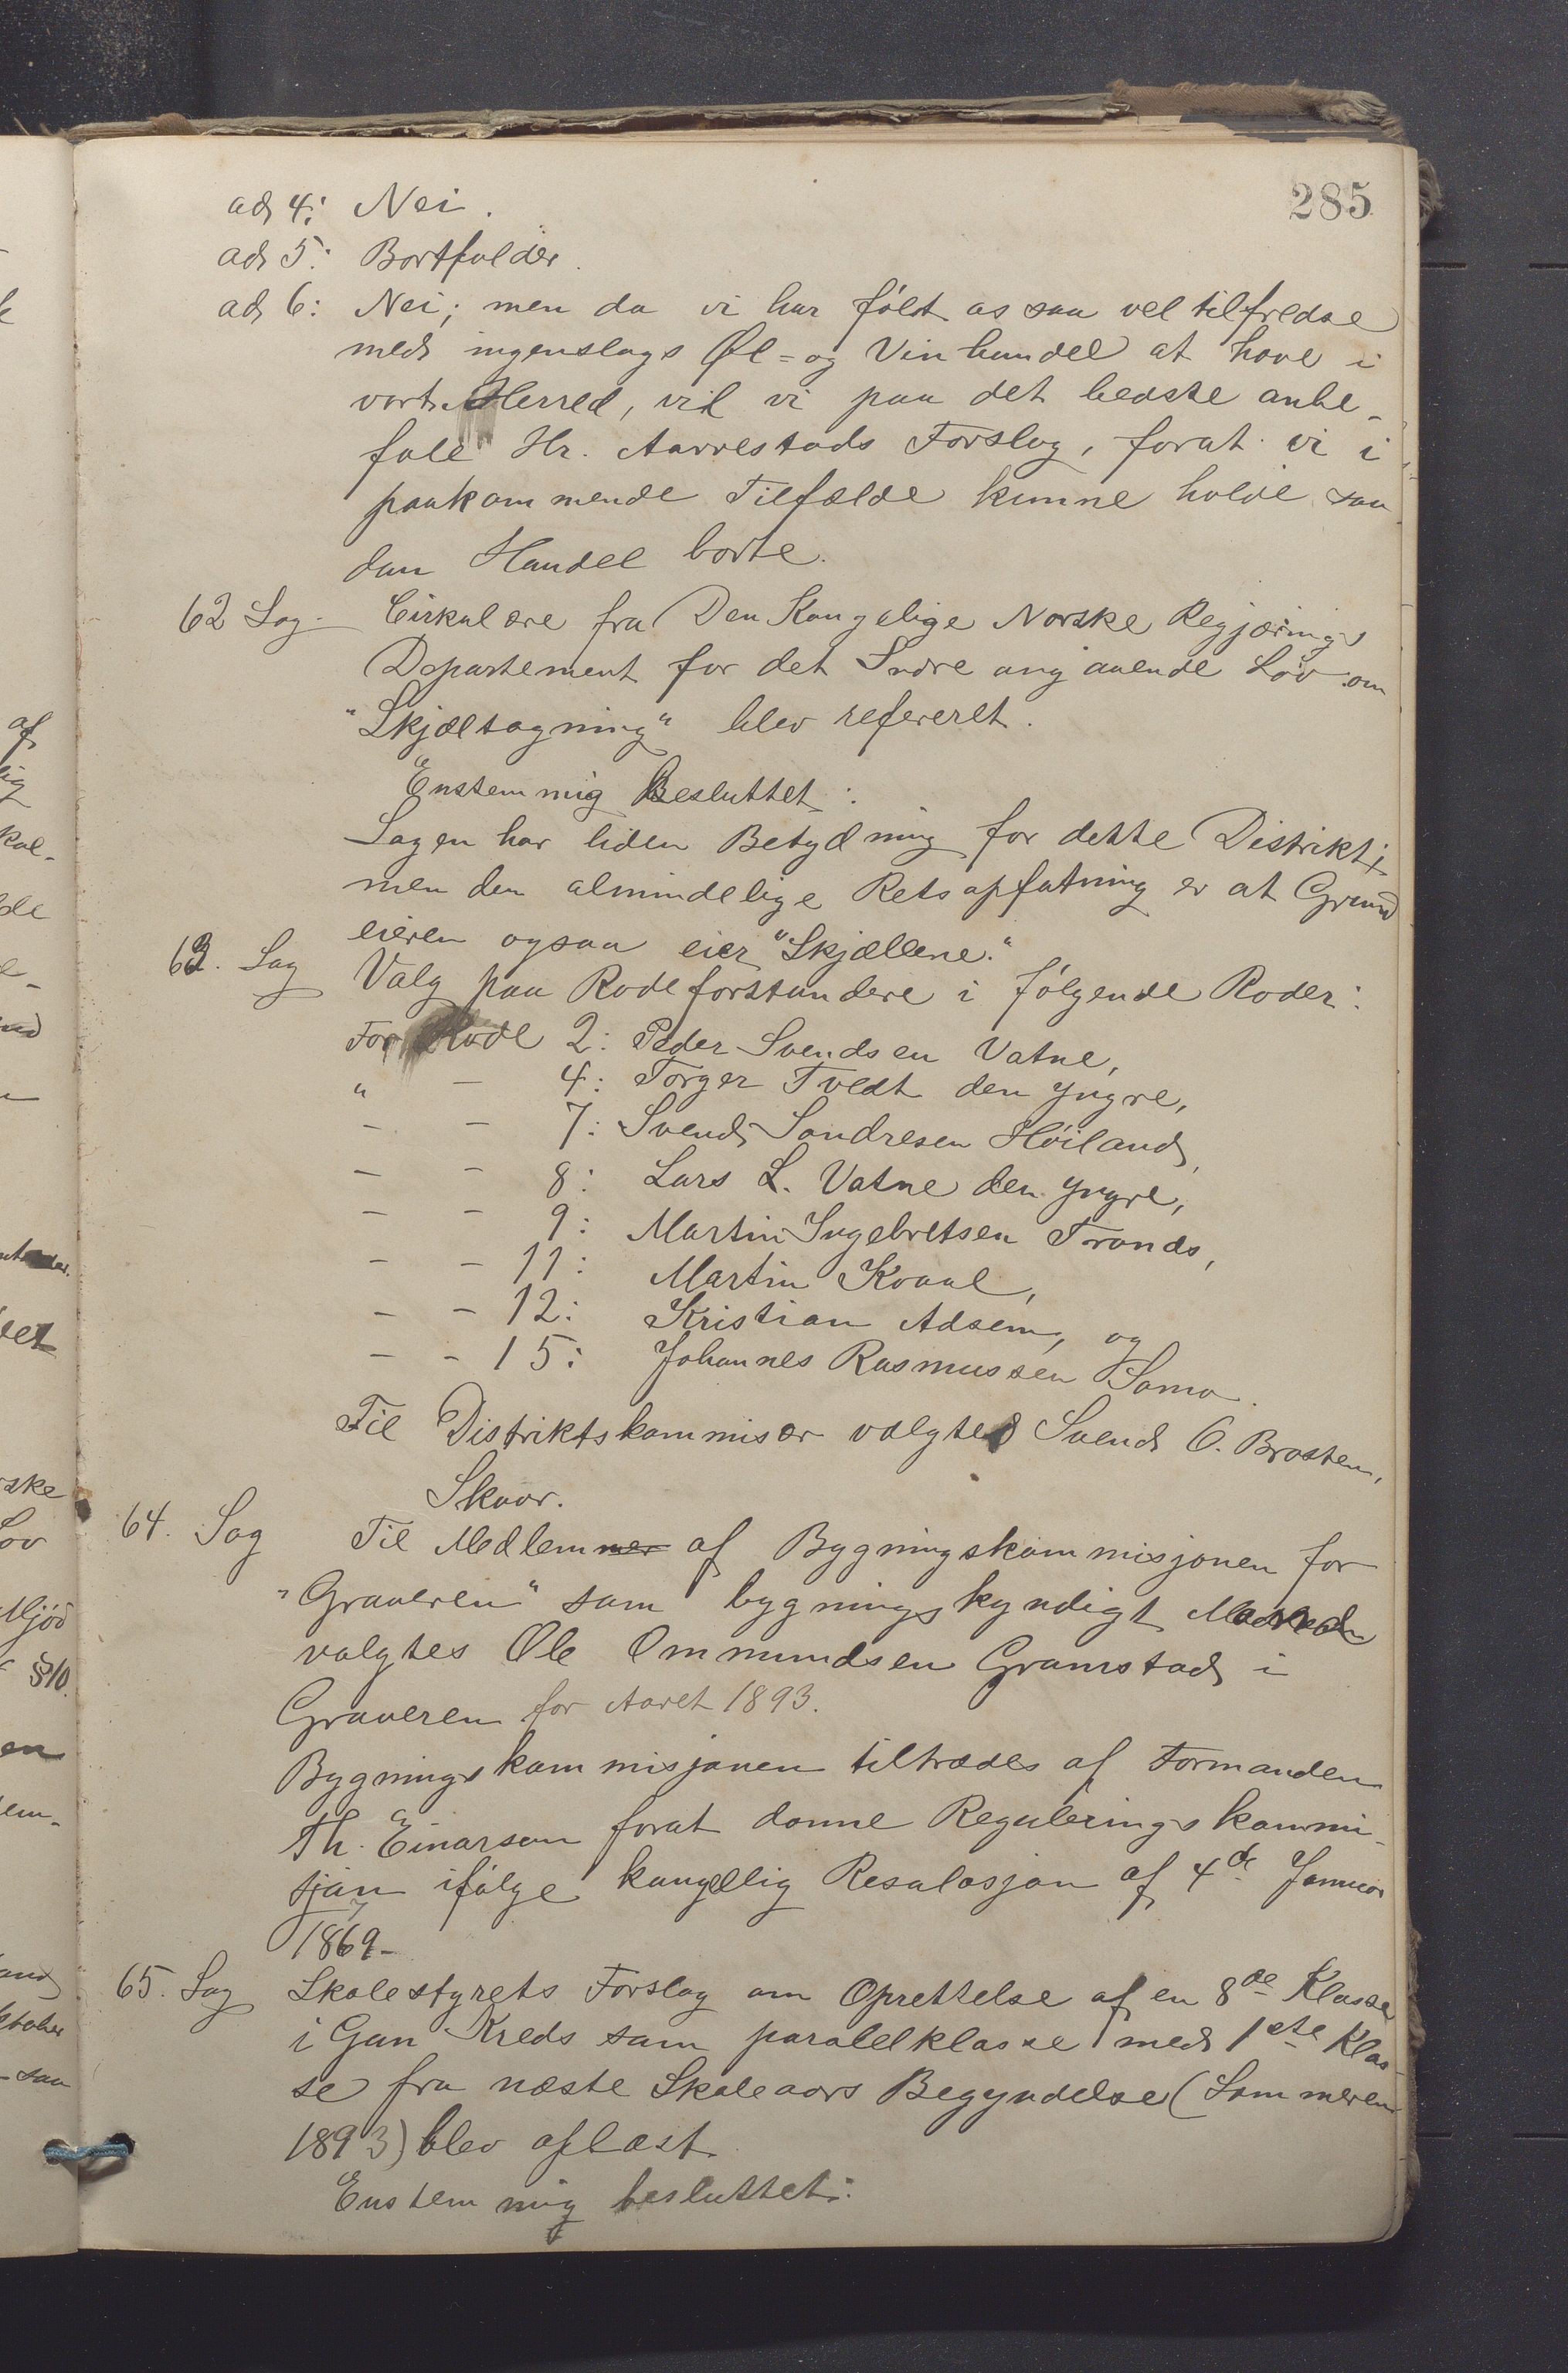 285
ad 4: Nei.
ad 5: Bortfalder.
ad 6: Nei; men da vi har følt os saa vel tilfredse
med ingenslags Øl- og Vinhandel at have i
vort Herred, vil vi paa det bedste anbe-
fale Hr. Aarrestads Forslag, forat vi i
paakommende Tilfælde kunne holde saa
dan Handel borte.
62 Sag. Cirkulære fra Den Kongelige Norske Regjærings
Departement for det Indre angaaende Lov om
"Skjæltagning" blev refereret.
Enstemmig Besluttet:
Sagen har liden Betydning for dette Distrikt;
men den almindelige Retsopfatning er at Grund
eieren ogsaa eier "Skjællene."
63. Sag Valg paa Rodeforstandere i følgende Roder:
For Rode 2: Peder Svendsen Vatne,
" - 4: Torger Tvedt den Yngre,
- - 7: Svend Sondresen Høiland,
- - 8: Lars L. Vatne den Yngre,
- - 9: Martin Ingebretsen Tronds,
- - 11: Martin Kvaal,
- - 12: Kristian Adsem, og
- - 15: Johannes Rasmussen Soma.
Til Distriktskommisær valgtes Svend O. Brasten,
Skaar.
64. Sag Til Medlemmer af Bygningskommisjonen for
"Graveren" som bygningskyndigt
valgtes Ole Ommundsen Gramstad i
Graveren for Aaret 1893.
Bygningskommisjonen tiltrædes af Formanden
Th. Einarsen forat danne Regulerings kommi-
sjon ifølge kongellig Resolosjon af 4de Januar
1869-
65. Sag Skolestyrets Forslag om Oprettelse af en 8de Klasse
i Gan Kreds som paralelklasse med 1ste Klas-
se fra næste Skoleaars Begyndelse (Sommeren
1893) blev oplæst.
Enstemmig besluttet: